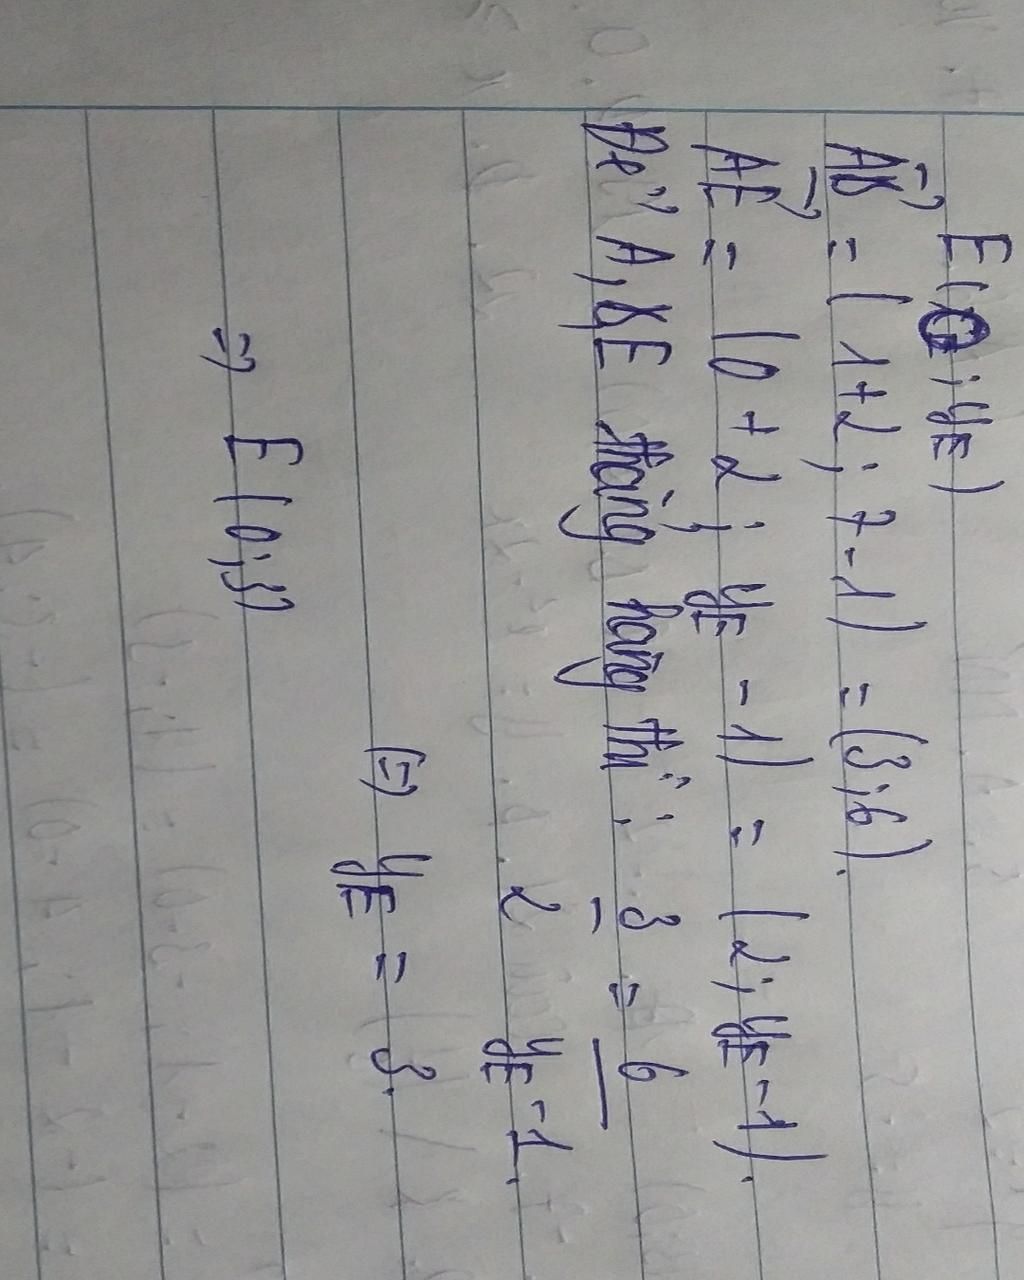 E(0; yE)
AB = (1+2; 7-1) = (3; 6).
AE = (0+2; yE - 1) = (2; yE - 1).
Để A, B, E thẳng hàng thì: 3/2 = 6/(yE - 1).
(=) yE = 3.
=) E(0; 3)